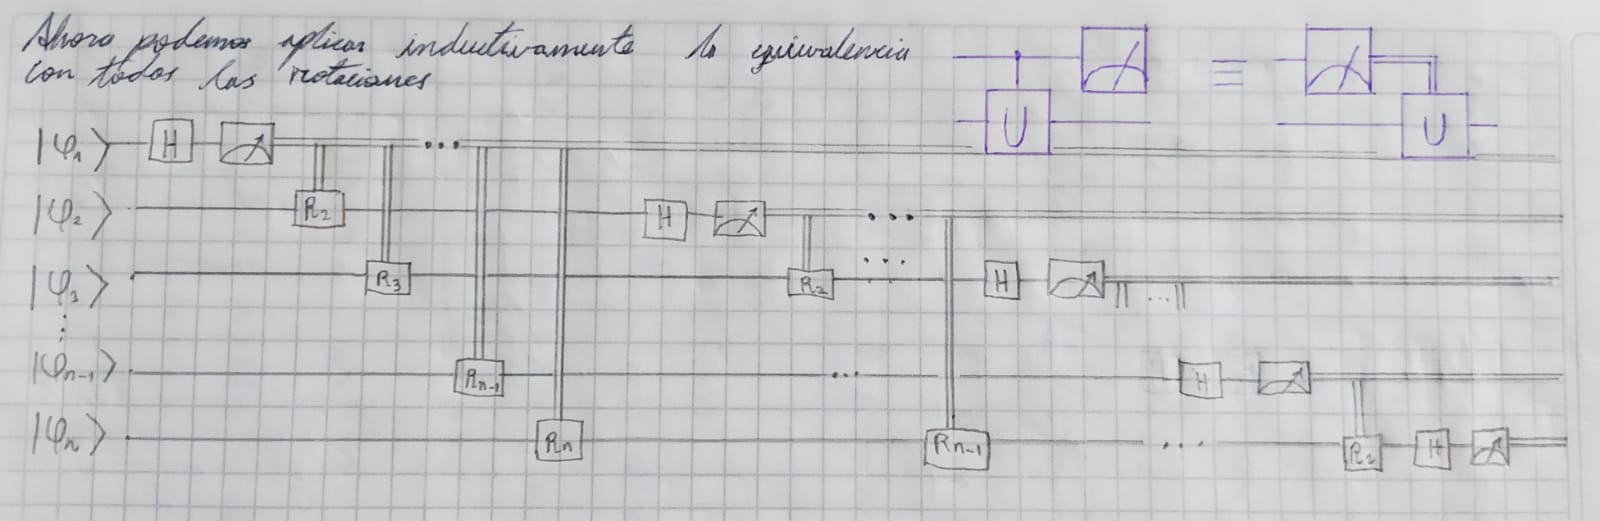 Ahora podemos aplicar inductivamente la equivalencia
con todas las rotaciones
U ≡ U
|φ₁⟩ H ...
R₂
|φ₂⟩ H ...
...
|φ₃⟩ R₃ R₂ H ...
⋮
|φₙ₋₁⟩ Rₙ₋₁ ... H
|φₙ⟩ Rₙ Rₙ₋₁ ... R₂ H